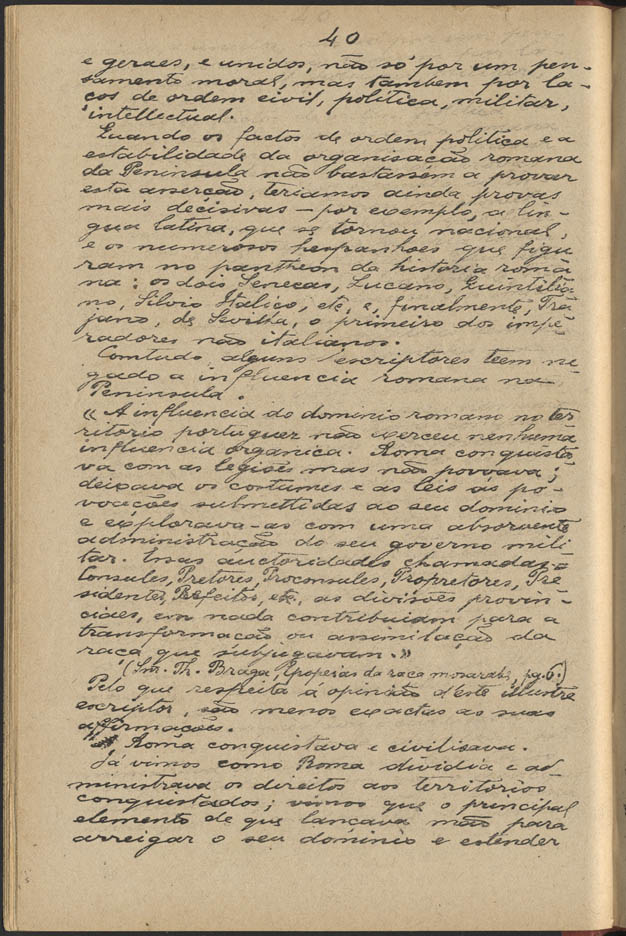 40
e geraes, e unidos, não só por um pen-
samento moral, mas tambem por la-
ços de ordem civil, politica, militar,
intellectual.
Quando os factos de ordem politica e a
estabilidade da organisação romana
da Peninsula não bastassem a provar
esta asserção, teriamos ainda provas
mais decisivas — por exemplo, a lin-
gua latina, que se tornou nacional,
e os numerosos hespanhoes que figu
ram no pantheon da historia roma
na: os dois Senecas, Lucano, Quintilia-
no, Silvio Italico, etc, e, finalmente, Tra
jano, de Sevilha, o primeiro dos impe
radores não italianos.
Comtudo, alguns escriptores teem ne
gado a influencia romana na
Peninsula.
« A influencia do dominio romano no ter-
ritorio portuguez não exerceu nenhuma
influencia organica. Roma conquista
va com as legiões mas não povoava;
deixava os costumes e as leis ás po-
voações submettidas ao seu dominio
e explorava-as com uma absorvente
administração do seu governo mili
tar. Essas auctoridades chamadas
Consules, Pretores, Proconsules, Propretores, Pre
sidentes, Prefeitos, etc, as divisões provin-
ciaes, em nada contribuiam para a
transformação ou assimilação da
raça que subjugavam.»
(Snr. Th. Braga, Epopeias da raça mosarabe, pg. 6.)
Pelo que respeita á opinião d'este illustre
escriptor, são menos exactas as suas
affirmações.
Roma conquistava e civilisava.
Já vimos como Roma dividia e ad-
ministrava os direitos aos territorios
conquistados; vimos que o principal
elemento de que lançava mão para
arreigar o seu dominio e estender